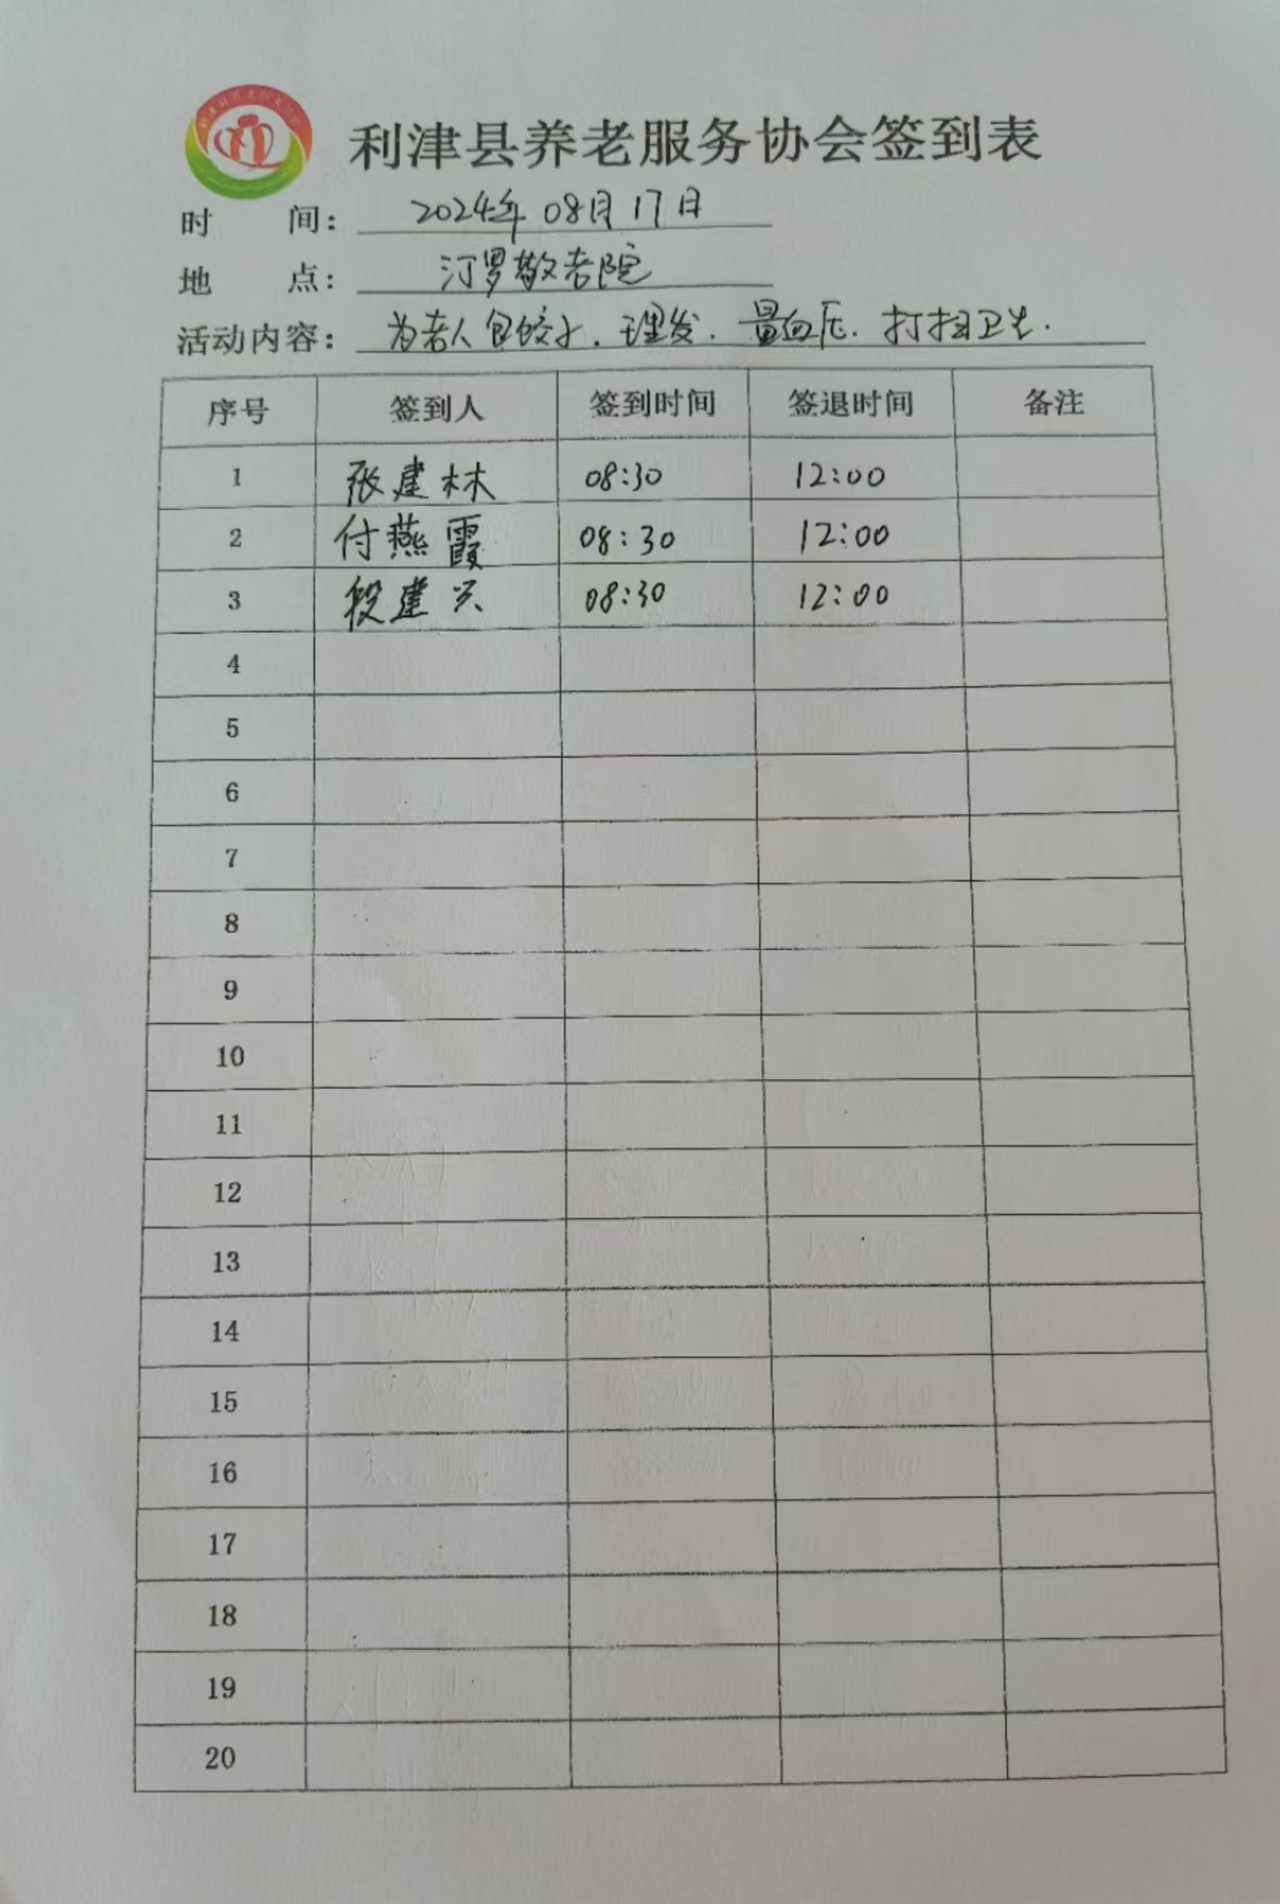 利津县养老服务协会
利津县养老服务协会签到表
时 间： 2024年08月17日
地 点： 汀罗敬老院
活动内容： 为老人包饺子.理发.量血压.打扫卫生.
序号 签到人 签到时间 签退时间 备注
1 张建林 08:30 12:00
2 付燕霞 08:30 12:00
3 段建兴 08:30 12:00
4
5
6
7
8
9
10
11
12
13
14
15
16
17
18
19
20